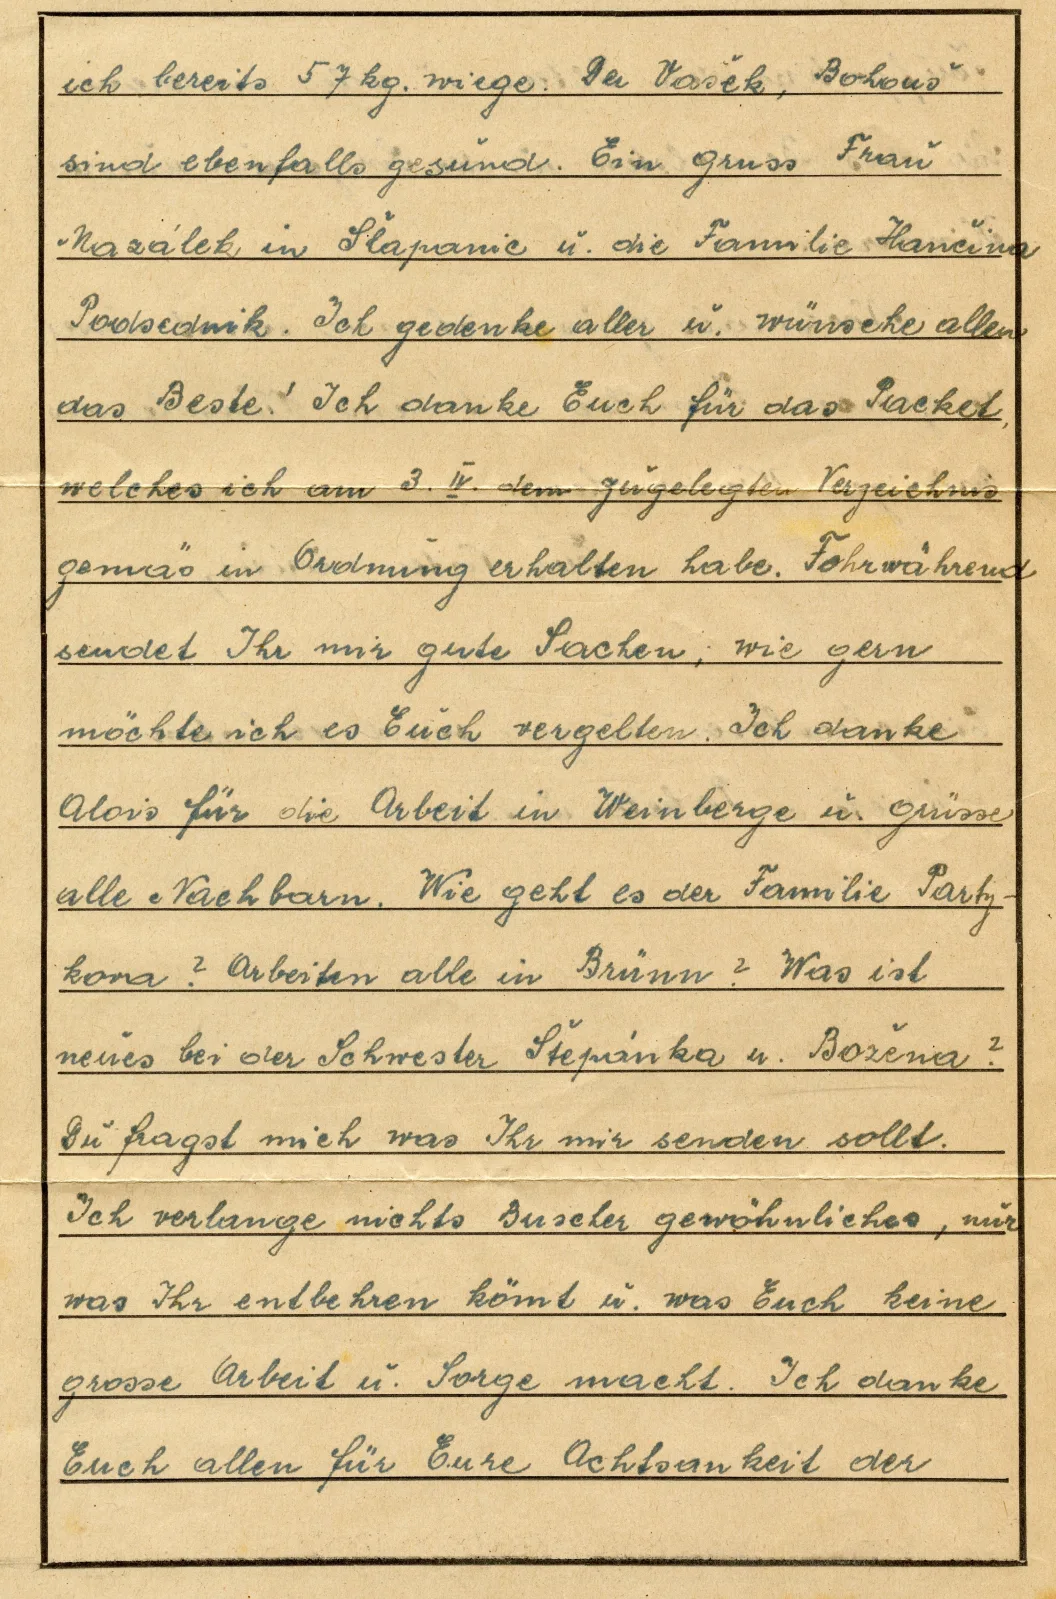 ich bereits 57 kg. wiege. Der Vašek, Bohouš
sind ebenfalls gesund. Ein Gruss Frau
Nazálek in Šlapanic u. die Familie Hančina
Podsednik. Ich gedenke aller u. wünsche allen
das Beste! Ich danke Euch für das Packet,
welches ich am 3. IV. dem zugelegten Verzeichnis
gemäs in Ordnung erhalten habe. Fohrwährend
sendet Ihr mir gute Sachen, wie gern
möchte ich es Euch vergelten. Ich danke
Alois für die Arbeit in Weinberge u. grüsse
alle Nachbarn. Wie geht es der Familie Party-
kova? Arbeiten alle in Brünn? Was ist
neues bei der Schwester Štepánka u. Božena?
Du fragst mich was Ihr mir senden sollt.
Ich verlange nichts gewöhnliches, nur
was Ihr entbehren kömt u. was Euch keine
grosse Arbeit u. Sorge macht. Ich danke
Euch allen für Eure Achtsankeit der